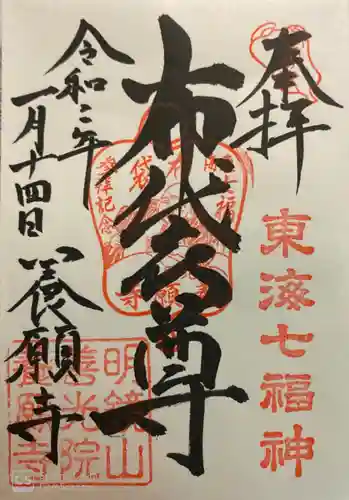 奉拝
東海七福神
布袋尊
令和二年
一月十四日
養願寺
明鏡山
善光院
養願寺